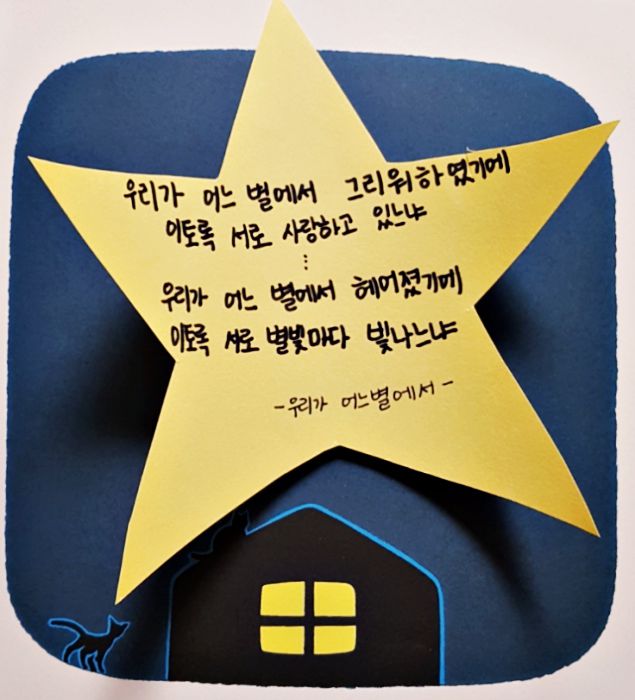 우리가 어느 별에서 그리워하였기에
이토록 서로 사랑하고 있느냐
⋮
우리가 어느 별에서 헤어졌기에
이토록 서로 별빛마다 빛나느냐
-우리가 어느별에서-